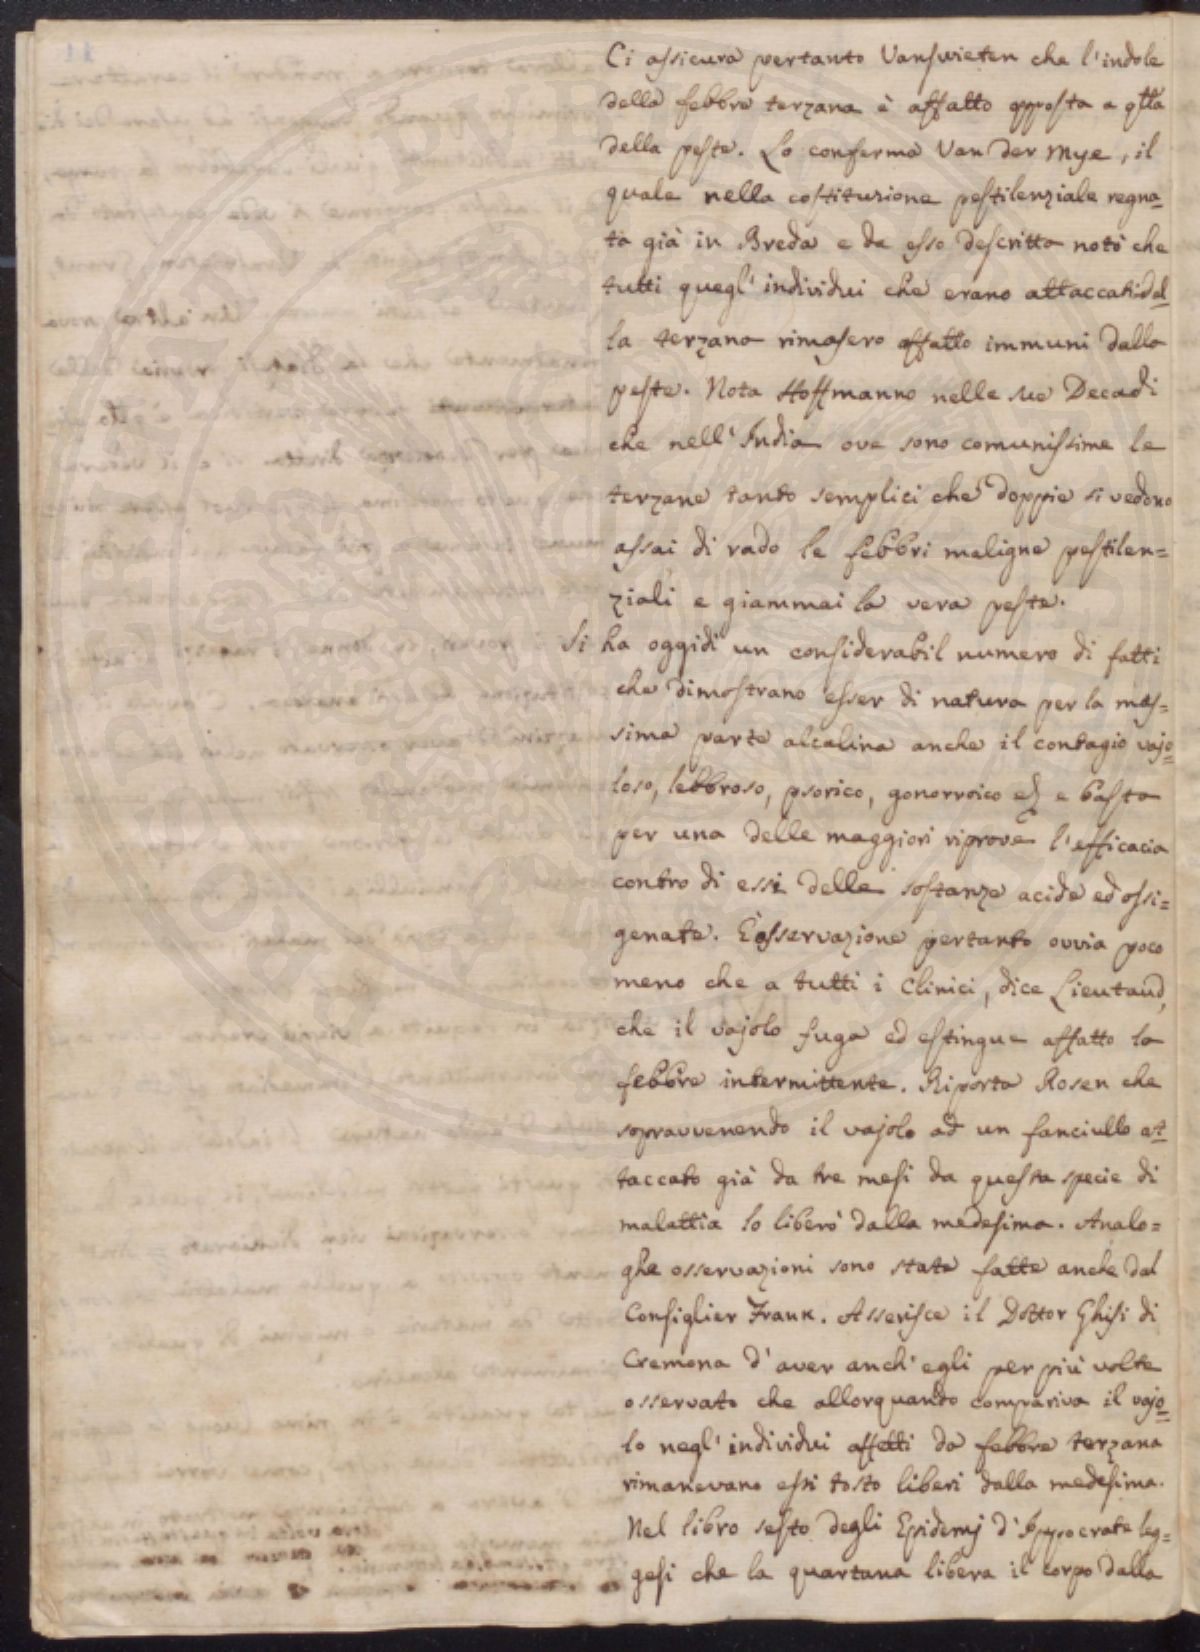 Ci assicura pertanto Vanswieten che l'indole
della febbre terzana è affatto opposta a qlla
della peste. Lo conferma Van der Mye, il
quale nella costituzione pestilenziale regna-
ta già in Breda e da esso descritta notò che
tutti quegl'individui che erano attaccati dal-
la terzana rimasero affatto immuni dalla
peste. Nota Hoffmanno nelle sue Decadi
che nell'India ove sono comunissime le
terzane tanto semplici che doppie si vedono
assai di rado le febbri maligne pestilen=
ziali e giammai la vera peste.
Si ha oggidì un considerabil numero di fatti
che dimostrano esser di natura per la mas=
sima parte alcalina anche il contagio vajo=
loso, lebbroso, psorico, gonorroico e basta
per una delle maggiori riprove l'efficacia
contro di essi delle sostanze acide ed ossi=
genate. È osservazione pertanto ovvia poco
meno che a tutti i Clinici, dice Lieutaud,
che il vajolo fuga ed estingue affatto la
febbre intermittente. Riporta Rosen che
sopravvenendo il vajolo ad un fanciullo at=
taccato già da tre mesi da questa specie di
malattia lo liberò dalla medesima. Analo=
ghe osservazioni sono state fatte anche dal
Consiglier Frank. Asserisce il Dottor Ghisi di
Cremona d'aver anch'egli per più volte
osservato che allorquando compariva il vajo=
lo negl'individui affetti da febbre terzana
rimanevano essi tosto liberi dalla medesima.
Nel libro sesto degli Epidemj d'Ippocrate leg=
gesi che la quartana libera il corpo dalla